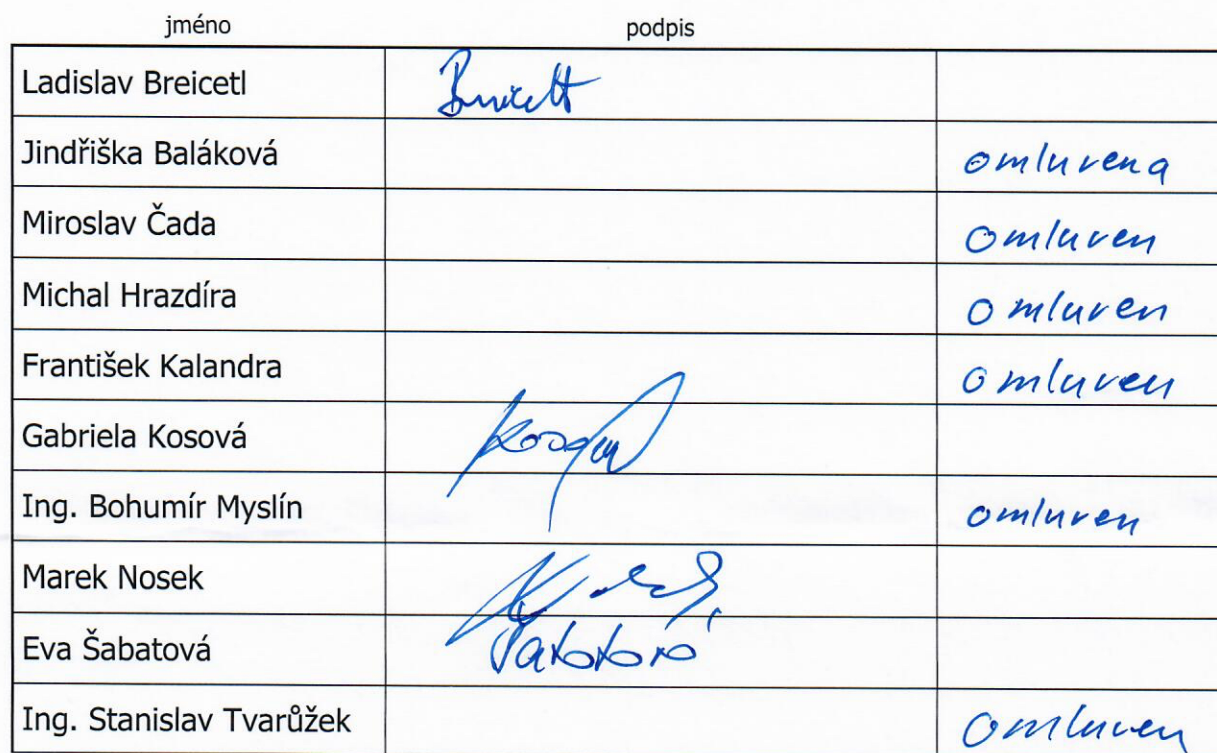 jméno podpis
Ladislav Breicetl Breicetl
Jindřiška Baláková omluvena
Miroslav Čada omluven
Michal Hrazdíra omluven
František Kalandra omluven
Gabriela Kosová
Ing. Bohumír Myslín omluven
Marek Nosek
Eva Šabatová Šabatová
Ing. Stanislav Tvarůžek omluven